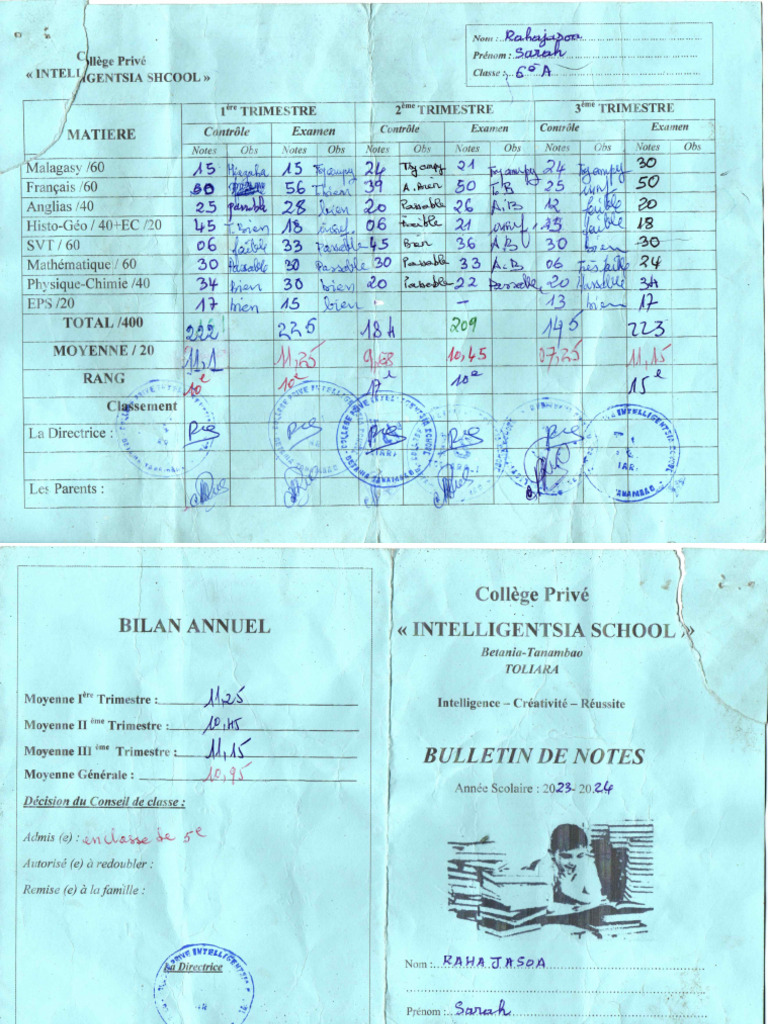 Collège Privé
« INTELLIGENTSIA SHCOOL »
Nom : Rahajasoa
Prénom : Sarah
Classe : 6è A
MATIERE 1ère TRIMESTRE 2ème TRIMESTRE 3ème TRIMESTRE
Contrôle Examen Contrôle Examen Contrôle Examen
Notes Obs Notes Obs Notes Obs Notes Obs Notes Obs Notes Obs
Malagasy /60 15 15 24 21 24 30
Français /60 56 39 A.Bien 50 T.B 25 50
Anglias /40 25 passable 28 bien 20 Passable 26 A.B 12 faible 20
Histo-Géo / 40+EC /20 45 T.bien 18 insuf. 06 Faible 21 insuf. faible 18
SVT / 60 06 faible 33 Passable 45 Bien 36 A.B 30 bien 30
Mathématique / 60 30 Passable 30 Passable 30 Passable 33 A.B 06 Très faible 24
Physique-Chimie /40 34 bien 30 bien 20 Passable 22 Passable 20 Passable 34
EPS /20 17 bien 15 bien - - 13 bien 17
TOTAL /400 222 225 184 209 145 223
MOYENNE / 20 11,1 11,25 10,45 07,25 11,15
RANG 10e 10e 17e 10e 15e
Classement
La Directrice :
Les Parents :
BILAN ANNUEL
Moyenne Ière Trimestre : 11,25
Moyenne II ème Trimestre : 10,45
Moyenne III ème Trimestre : 11,15
Moyenne Générale : 10,95
Décision du Conseil de classe :
Admis (e) : en classe de 5e
Autorisé (e) à redoubler :
Remise (e) à la famille :
La Directrice
Collège Privé
« INTELLIGENTSIA SCHOOL »
Betania-Tanambao
TOLIARA
Intelligence – Créativité – Réussite
BULLETIN DE NOTES
Année Scolaire : 2023- 2024
Nom : RAHAJASOA
Prénom : Sarah